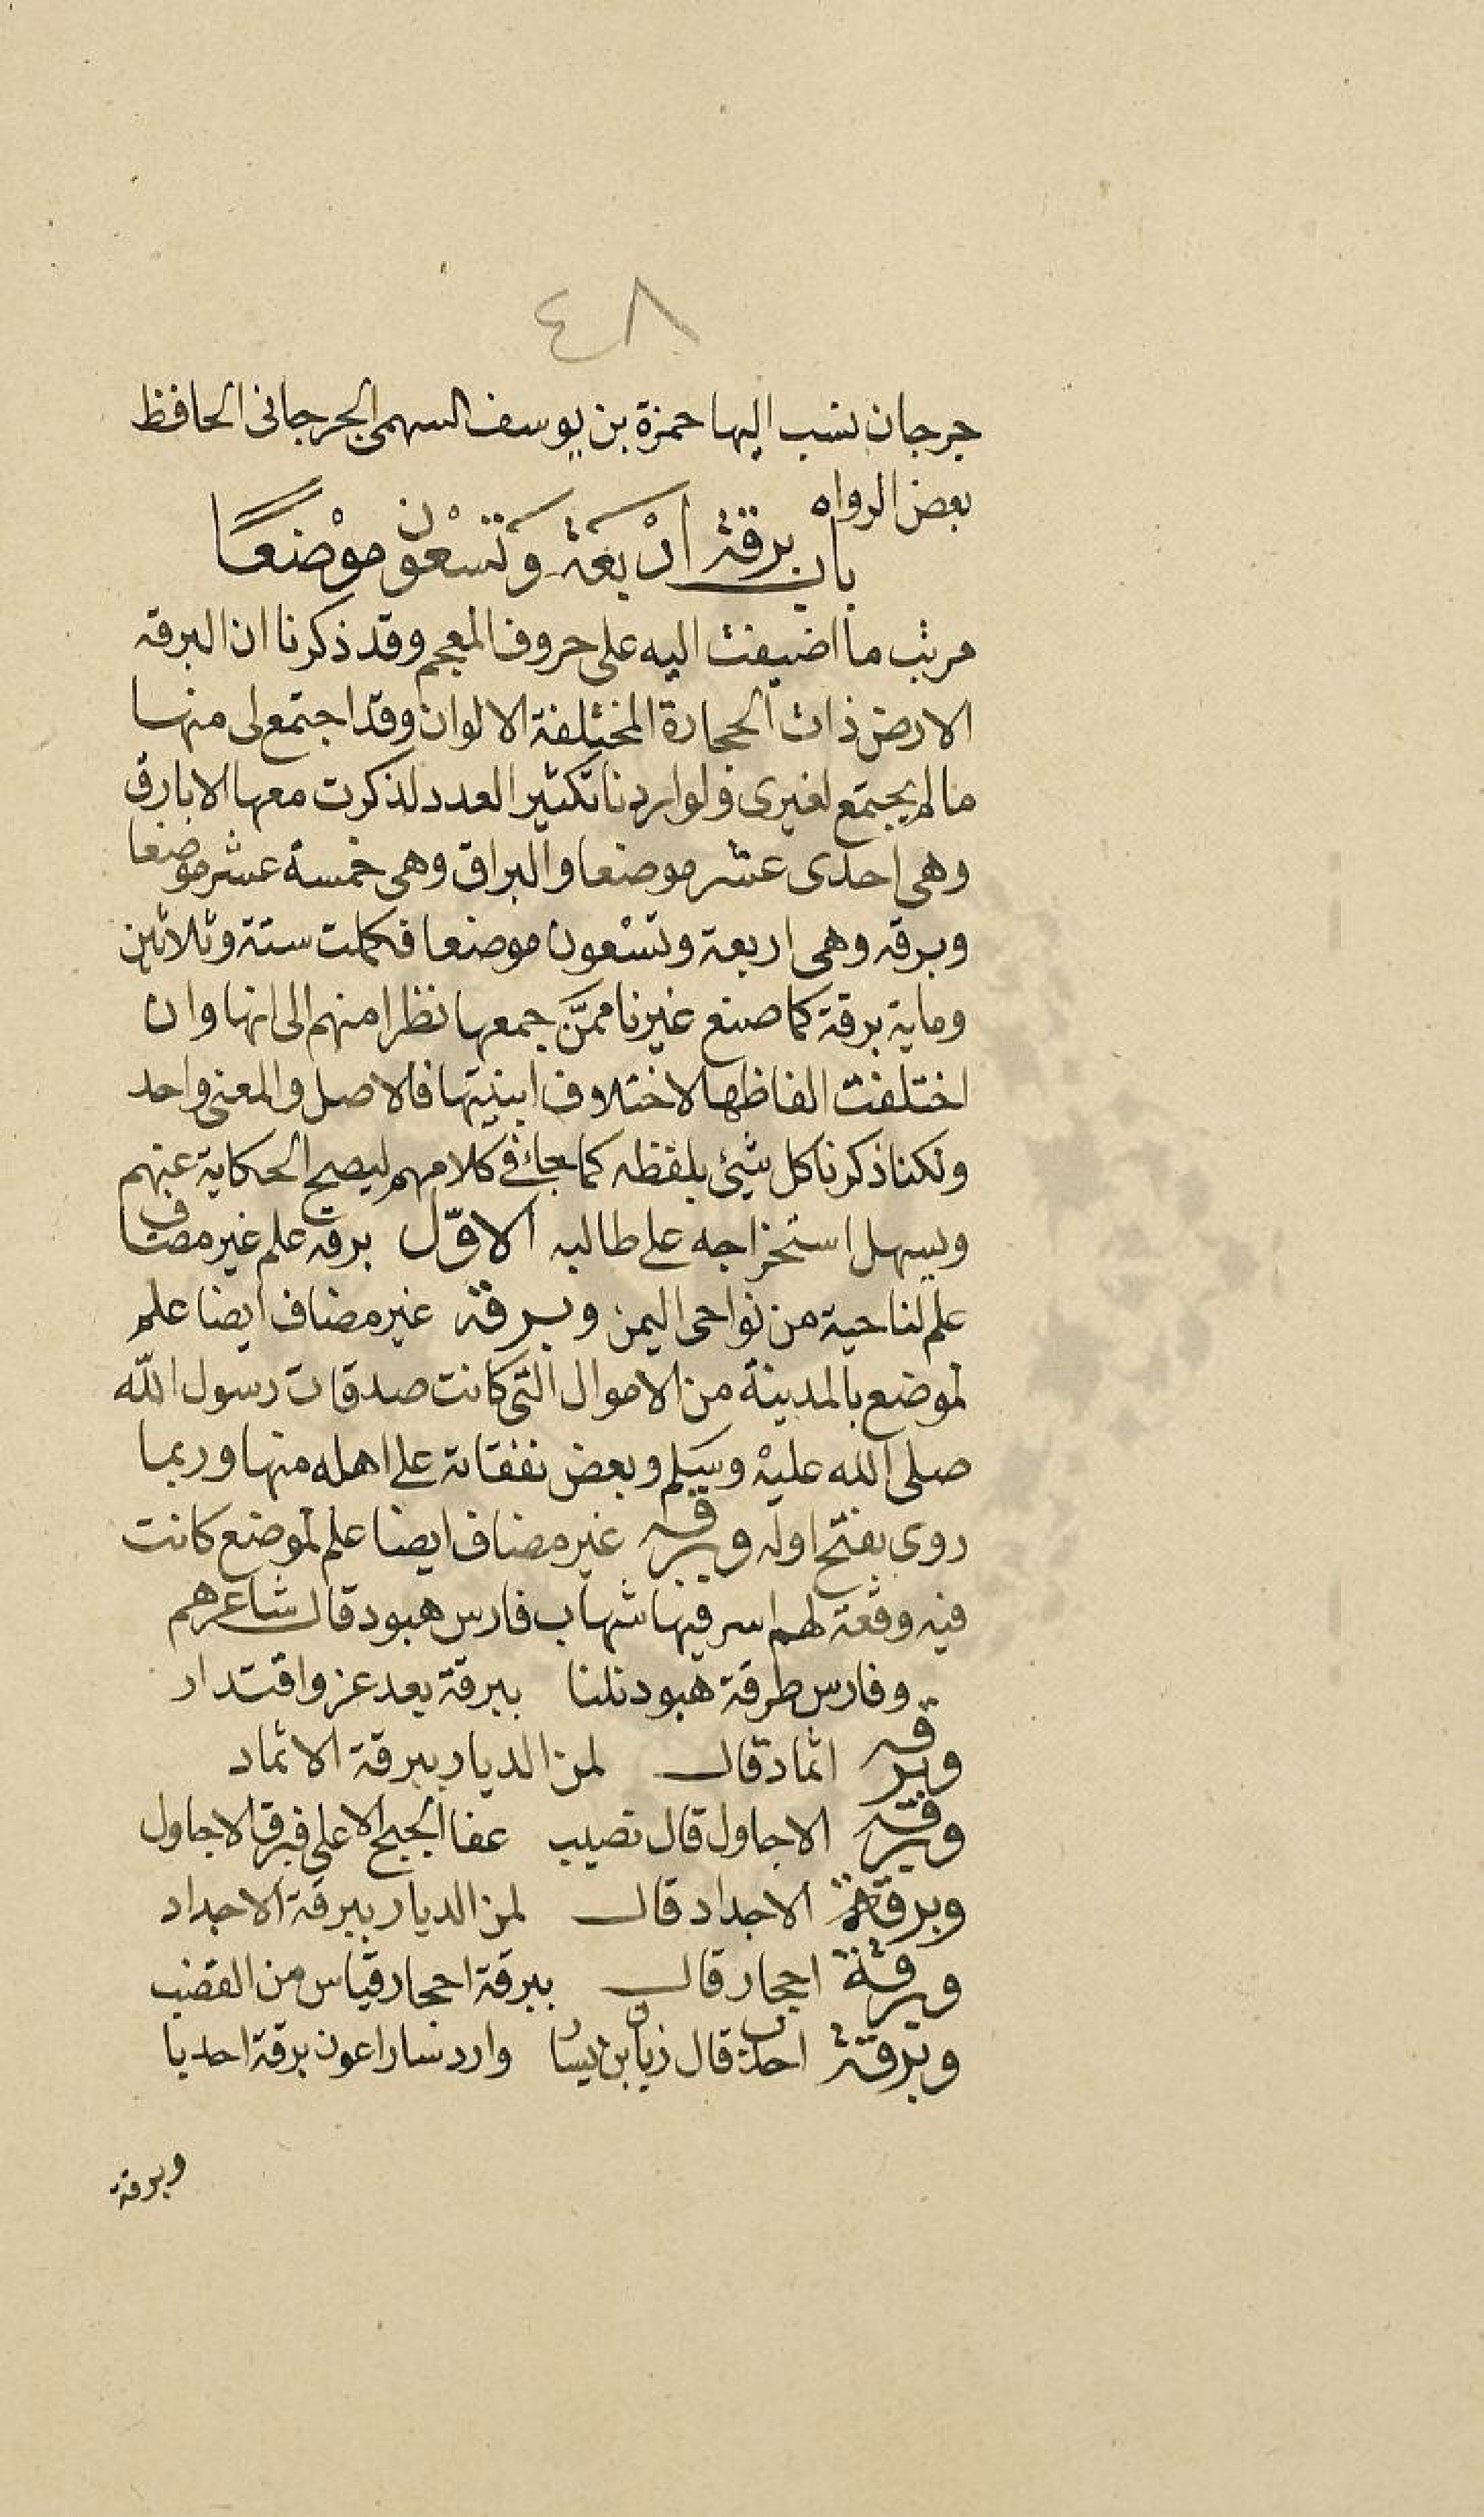 ٤٨
جرجان نسب اليها حمزة بن يوسف السهمي الجرجاني الحافظ
بعض الرواه
باب برقة اربعة وتسعون موضعًا
مرتب ما اضيفت اليه على حروف المعجم وقد ذكرنا ان البرقه
الارض ذات الحجارة المختلفة الالوان وقد اجتمع لى منها
ما لم يجتمع لغيرى ولو اردنا تكثير العدد لذكرت معها الابارق
وهى احدى عشر موضعا والبراق وهى خمسة عشر موضعا
وبرقه وهى اربعة وتسْعون موضعا فكملت ستة وثلاثين
وماية برقة كما صنع غيرنا ممَّن جمعها نظرا منهم الى انها وان
اختلفت الفاظها لاختلاف ابنيتها فالاصل والمعنى واحد
ولكنا ذكرنا كل شيئ بلفظه كما جائ في كلامهم ليصح الحكاية عنهم
ويسهل استخراجه على طالبه الاوّل برقه علم غير مضاف
علم لناحية من نواحى اليمن وبرقة غير مضاف ايضا علم
لموضع بالمدينة من الاموال التى كانت صدقات رسول الله
صلى الله عليْه وسَلم وبعض نفقاته على اهله منها وربما
روى بفتح اوله وبرقه غير مضاف ايضا علم لموضع كانت
فيه وقعة لهم اسر فيها شهاب فارس هبود قال شاعرهم
وفارس طرفة هبود نلنا ببرقة بعد عز واقتدار
وبرقه اثماد قال لمن الديار ببرقة الاثماد
وبرقه الاجاول قال نصيب عفا الحبج الاعلى فبرق الاجاول
وبرقة الاجداد قال لمن الديار ببرقة الاجداد
وبرقة احجار قال ببرقة احجار قياس من القضب
وبرقة احدب قال زبان بن يسار وارد سارا عون برقة احدبا
وبرقة